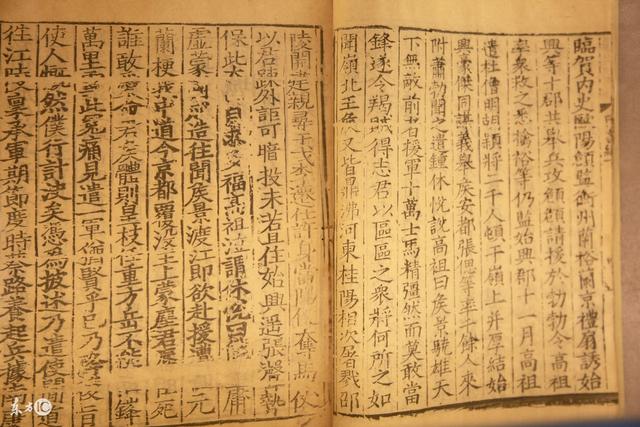 臨賀內史歐陽頠監衡州蘭裕蘭京禮扇誘始
興等十郡共舉兵攻頠頠請援於勃勃令高祖
率衆救之悉擒裕等仍監始興郡十一月高祖
遣杜僧明胡穎將二千人頓于嶺上并厚結始
興豪傑同謀義舉侯安都張偲等率千餘人來
附蕭勃聞之遣鍾休悅說高祖曰侯景驍雄天
下無敵前者援軍十萬士馬精彊然而莫敢當
鋒遂令羯賊得志君以區區之衆將何所之如
聞嶺北王侯又皆鼎沸河東桂陽相次屠戮邵
陵開建親尋干戈李遷仕許身當陽便奪馬仗
以君疎外詎可暗投未若且住始興遙張聲勢
保此太山自求多福高祖泣謂休悅曰僕本庸
虛蒙國成造往聞侯景渡江即欲赴援遭值元
蘭梗我中道今京都覆沒主上蒙塵君辱臣死
誰敢愛命君侯體則皇枝任重方岳不能摧鋒
萬里雪此冤痛見遣一軍猶賢乎已乃降後旨
使人慨然僕行計決矣憑為披述乃遣使間道
往江陵稟承軍期節度時蔡路養起兵據南
东方IC